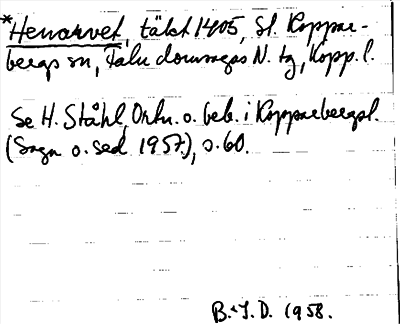 *Henarvet, täkt 1405, St. Koppar-
bergs sn, Falu domsagas N. tg, Kopp. l.
Se H. Ståhl, Ortn. o. beb. i Kopparbergsl.
(Saga o. sed 1957), s. 60.
B. J. D. 1958.